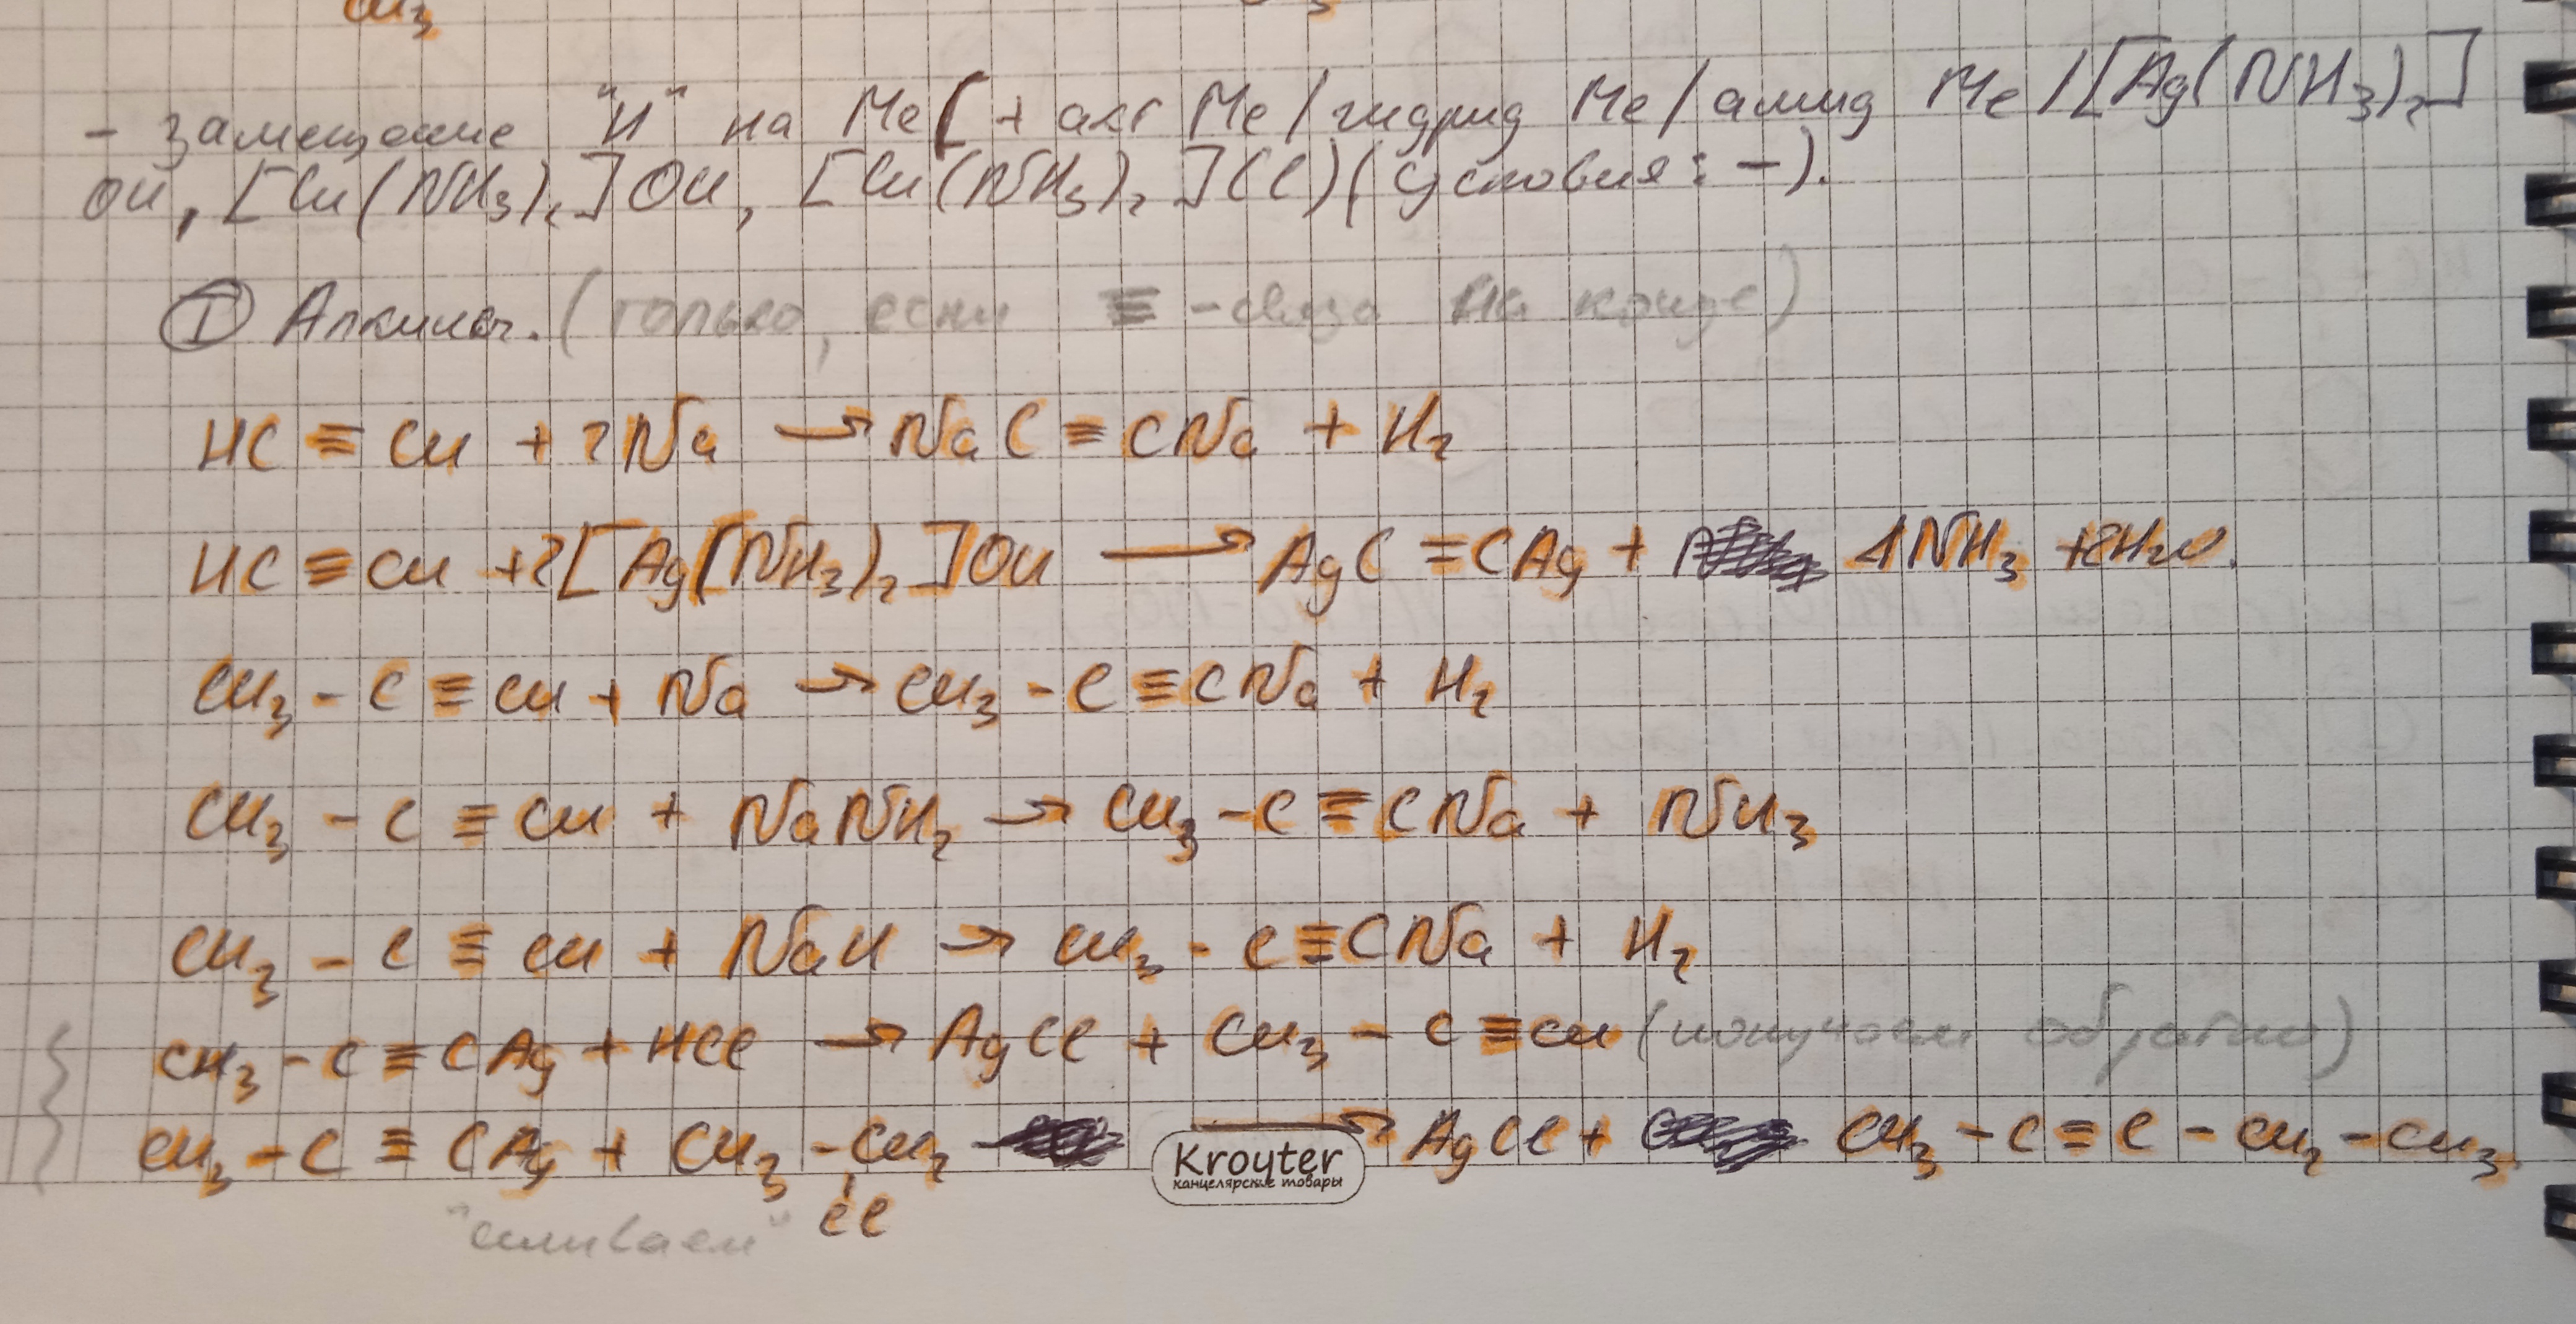 CH₃
- замещение "H" на Me (+ акт Me / гидрид Me / амид Me / [Ag(NH₃)₂]
OH, [Cu(NH₃)₂]OH, [Cu(NH₃)₂]Cl) (условия: -).
① Алкины. (только, если ≡ -связь на конце)
HC ≡ CH + 2Na → NaC ≡ CNa + H₂
HC ≡ CH + 2[Ag(NH₃)₂]OH → AgC ≡ CAg + 4NH₃ + 2H₂O.
CH₃ - C ≡ CH + Na → CH₃ - C ≡ CNa + H₂
CH₃ - C ≡ CH + NaNH₂ → CH₃ - C ≡ CNa + NH₃
CH₃ - C ≡ CH + NaH → CH₃ - C ≡ CNa + H₂
CH₃ - C ≡ CAg + HCl → AgCl + CH₃ - C ≡ CH (получаем обратно)
CH₃ - C ≡ CAg + CH₃ - CH₂ → AgCl + CH₃ - C ≡ C - CH₂ - CH₃
Cl
"сшиваем"
Kroyter
канцелярские товары